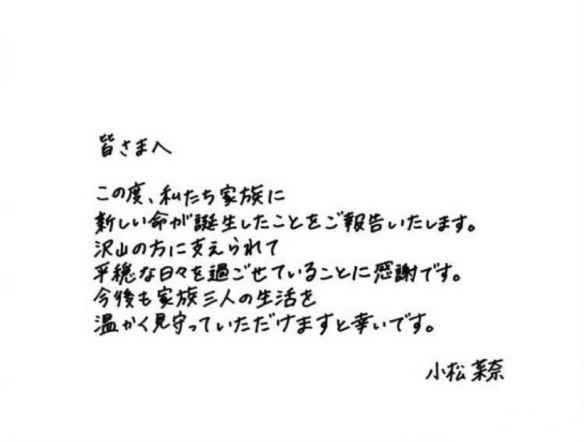 皆さまへ
この度、私たち家族に
新しい命が誕生したことをご報告いたします。
沢山の方に支えられて
平穏な日々を過ごせていることに感謝です。
今後も家族三人の生活を
温かく見守っていただけますと幸いです。
小松菜奈